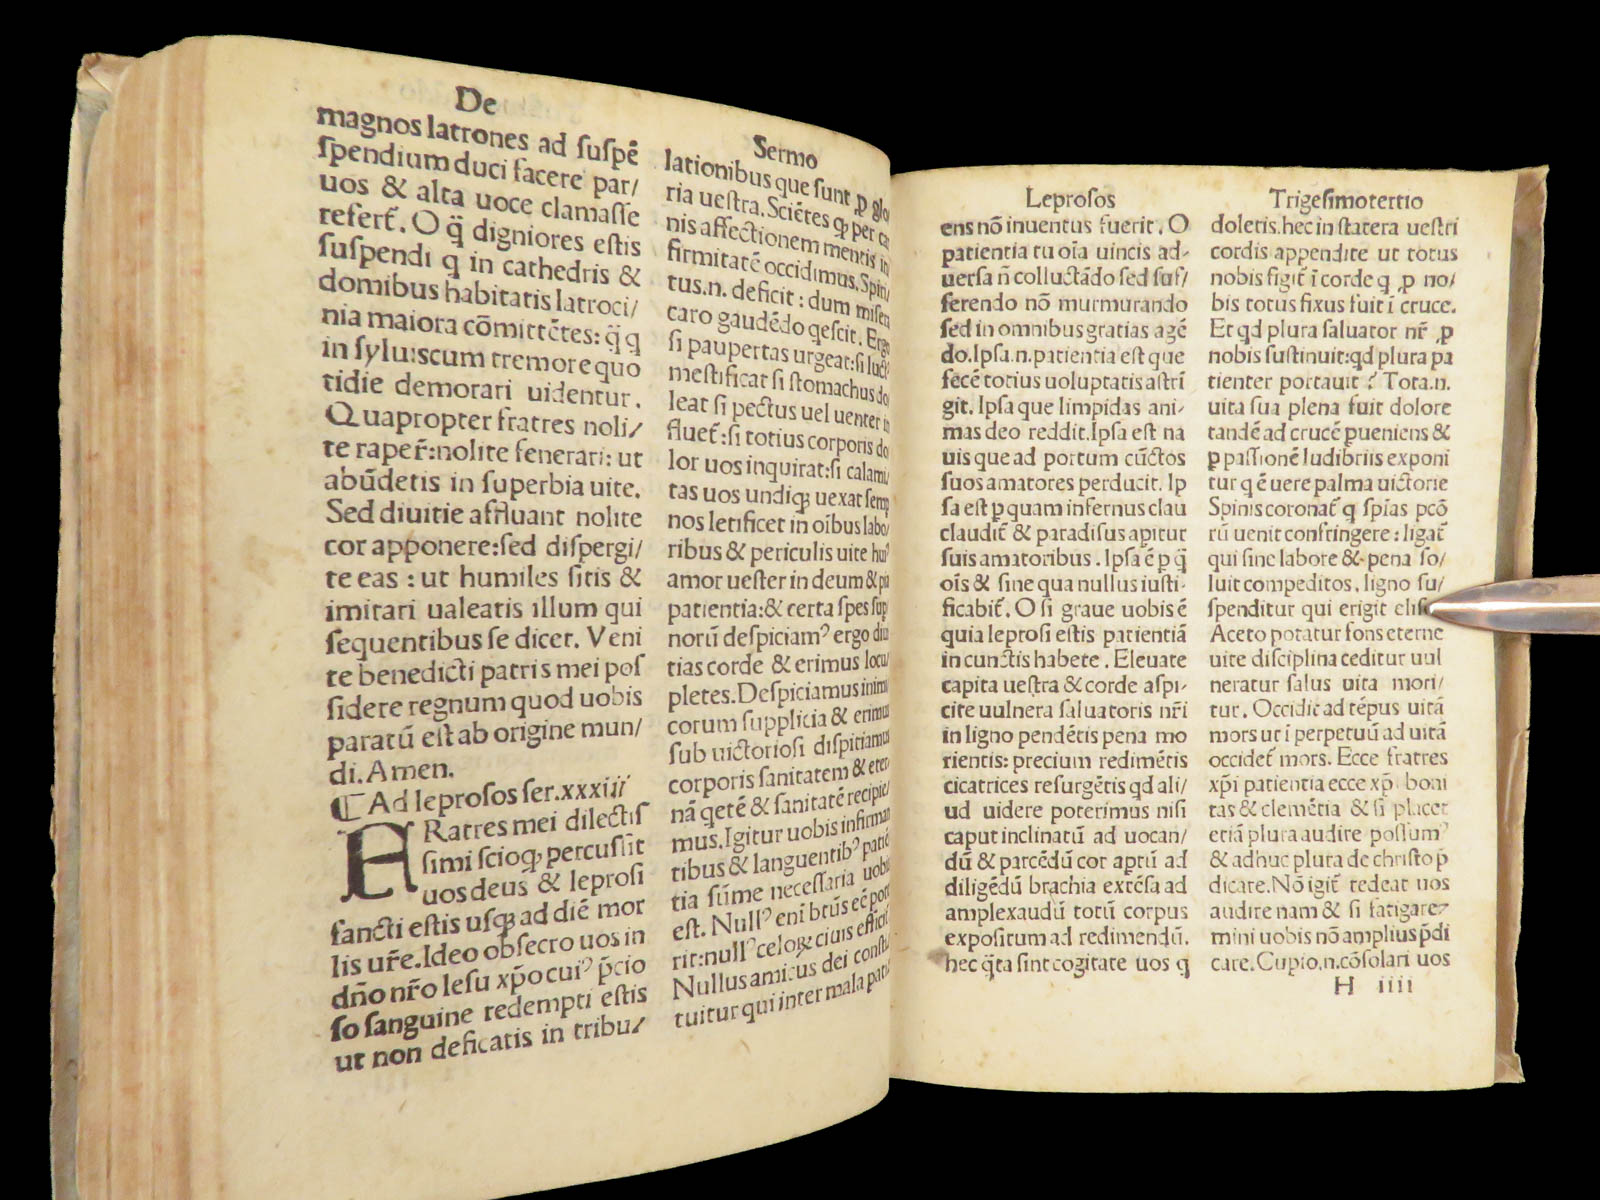 De
magnos latrones ad suſpē
ſpendium duci facere par/
uos & alta uoce clamaſſe
refert̄. O q̄ digniores eſtis
ſuſpendi q in cathedris &
domibus habitatis latroci/
nia maiora cōmittētes: q̄ q
in ſylu:scum tremore quo
tidie demorari uidentur.
Quapropter fratres noli/
te raper̄:nolite fenerari: ut
abūdetis in ſuperbia uite.
Sed diuitie affluant nolite
cor apponere:ſed diſpergi/
te eas : ut humiles ſitis &
imitari ualeatis illum qui
ſequentibus ſe dicet. Veni
te benedicti patris mei poſ
ſidere regnum quod uobis
paratū eſt ab origine mun/
di. Amen.
⁋ Ad leproſos ſer.xxxiii
FRatres mei dilectiſ
ſimi ſcio qꝫ percuſſit
uos deus & leproſi
ſancti eſtis uſqꝫ ad diē mor
lis ur̄e. Ideo obſecro uos in
dn̄o nr̄o Ieſu xp̄o cuiꝰ p̄cio
ſo ſanguine redempti eſtis
ut non deficatis in tribu/
Sermo
lationibus que ſunt ꝓ glo
ria ueſtra. Sciētes qꝫ per ca
nis affectionem mentis in
firmitatē occidimus. Spiri/
tus.n. deficit : dum miſera
caro gaudēdo qeſcit. Ergo
ſi paupertas urgeat:ſi luctꝰ
meſtificat ſi ſtomachus do
leat ſi pectus uel uenter in
fluet̄:ſi totius corporis do
lor uos inquirat:ſi calami/
tas uos undiqꝫ uexat ſemp
nos letificet in oībus labo/
ribus & periculis uite huiꝰ
amor ueſter in deum & pia
patientia:& certa ſpes ſup
norū deſpiciamꝰ ergo diui
tias corde & erimus locu/
pletes. Deſpiciamus inimi
corum ſupplicia & erimus
ſub uictorioſi diſpitiamus
corporis ſanitatem & eter
nā qetē & ſanitatē recipie/
mus. Igitur uobis infirman
tibus & languentibꝰ patiē
tia ſūme neceſſaria uobis
eſt. Nullꝰ enī btūs eē pote
rit:nullꝰ celoꝝ ciuis effici
Nullus amicus dei conſti
tuitur qui inter mala patie
Leproſos
ens nō inuentus fuerit. O
patientia tu oīa uincis ad-
uerſa n̄ colluctādo ſed ſuf/
ferendo nō murmurando
ſed in omnibus gratias agē
do. Ipſa.n. patientia eſt que
fecē totius uoluptatis aſtrī
git. Ipſa que limpidas ani-
mas deo reddit. Ipſa eſt na
uis que ad portum cūctos
ſuos amatores perducit. Ip
ſa eſt ꝑ quam infernus clau
claudit̄ & paradiſus apitur
ſuis amatoribus . Ipſa ē p q̄
oīs & ſine qua nullus iuſti-
ficabit̄. O ſi graue uobis ē
quia leproſi eſtis patientiā
in cunctis habete . Eleuate
capita ueſtra & corde aſpi-
cite uulnera ſaluatoris nr̄i
in ligno pendētis pena mo
rientis: precium redimētis
cicatrices reſurgētis qd ali/
ud uidere poterimus niſi
caput inclinatū ad uocan/
dū & parcēdū cor aptū ad
diligēdū brachia extēſa ad
amplexaudū totū corpus
expoſitum ad redimendū.
hec q̄ta ſint cogitate uos q
Trigeſimotertio
doletis.hec in ſtatera ueſtri
cordis appendite ut totus
nobis figit̄ ī corde q ꝓ no/
bis totus fixus fuit ī cruce.
Et qd plura ſaluator nr̄ ꝓ
nobis ſuſtinuit:qd plura pa
tienter portauit ? Tota.n.
uita ſua plena fuit dolore
tandē ad crucē ꝑueniens &
ꝑ paſſionē ludibriis exponi
tur q ē uere palma uictorie
Spinis coronat̄ q ſpīas pcō
rū uenit confringere : ligat̄
qui ſine labore & pena ſo/
luit compeditos. ligno ſu/
ſpenditur qui erigit eliſ
Aceto potatur fons eterne
uite diſciplina ceditur uul
neratur ſalus uita mori/
tur. Occidit ad tēpus uitā
mors ut ī perpetuū ad uitā
occidet̄ mors. Ecce fratres
xp̄i patientia ecce xp̄i boni
tas & clemētia & ſi placet
etiā plura audire poſſumꝰ
& adhuc plura de chriſto p̄
dicare. Nō igit̄ tedeat uos
audire nam & ſi fatigare/
mini uobis nō amplius p̄di
care. Cupio.n. cōſolari uos
H iiii